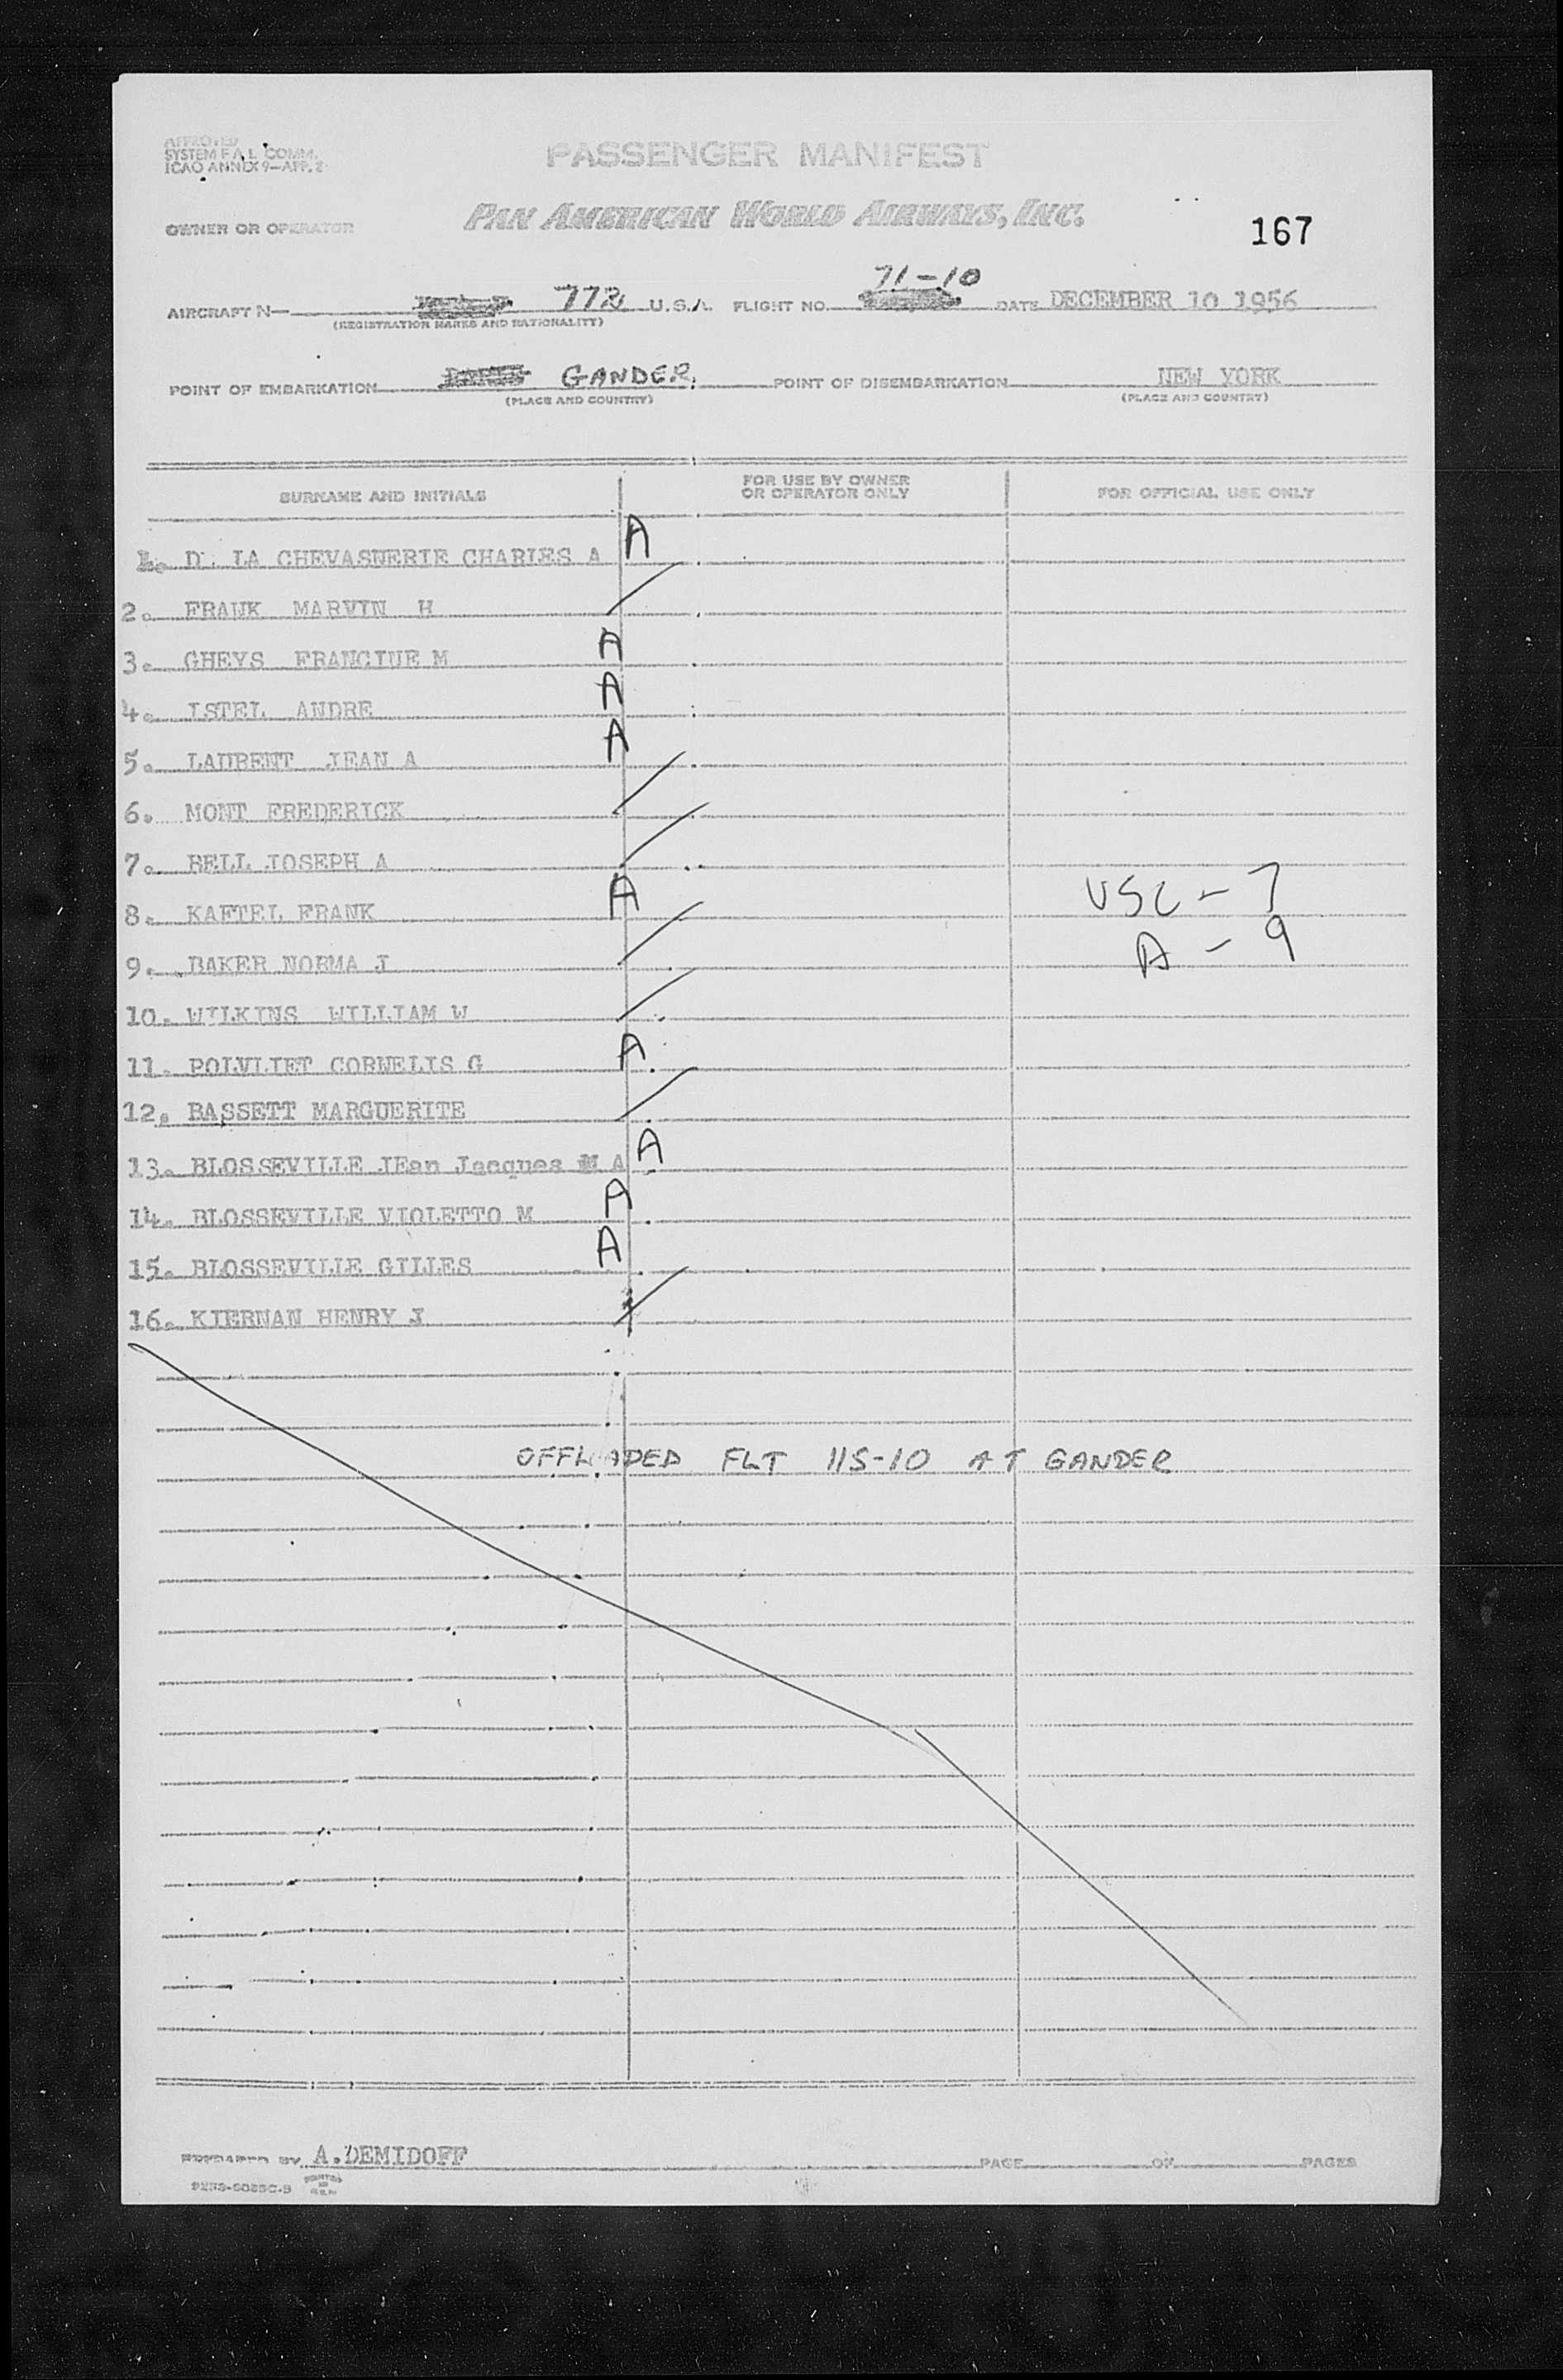 APPROVED
SYSTEM F.A.L. COMM.
ICAO ANNEX 9—APP. 2
PASSENGER MANIFEST
OWNER OR OPERATOR
PAN AMERICAN WORLD AIRWAYS, INC.
167
71-10
AIRCRAFT N— 772 U.S.A. FLIGHT NO. DATE DECEMBER 10 1956
(REGISTRATION MARKS AND NATIONALITY)
POINT OF EMBARKATION GANDER. POINT OF DISEMBARKATION NEW YORK
(PLACE AND COUNTRY) (PLACE AND COUNTRY)
SURNAME AND INITIALS
FOR USE BY OWNER
OR OPERATOR ONLY
FOR OFFICIAL USE ONLY
1. D LA CHEVASNERIE CHARLES A A
2. FRANK MARVIN H
3. GHEYS FRANCINE M A
4. ISTEL ANDRE A
5. LAURENT JEAN A A
6. MONT FREDERICK
7. BELL JOSEPH A
8. KAFTEL FRANK A USC - 7
9. BAKER NORMA J A - 9
10. WILKINS WILLIAM W
11. POLVLIET CORNELIS G A
12. BASSETT MARGUERITE
13. BLOSSEVILLE JEan Jacques M A A
14. BLOSSEVILLE VIOLETTO M A
15. BLOSSEVILLE GILLES A
16. KIERNAN HENRY J
OFFLOADED FLT 115-10 AT GANDER
PREPARED BY A.DEMIDOFF PAGE OF PAGES